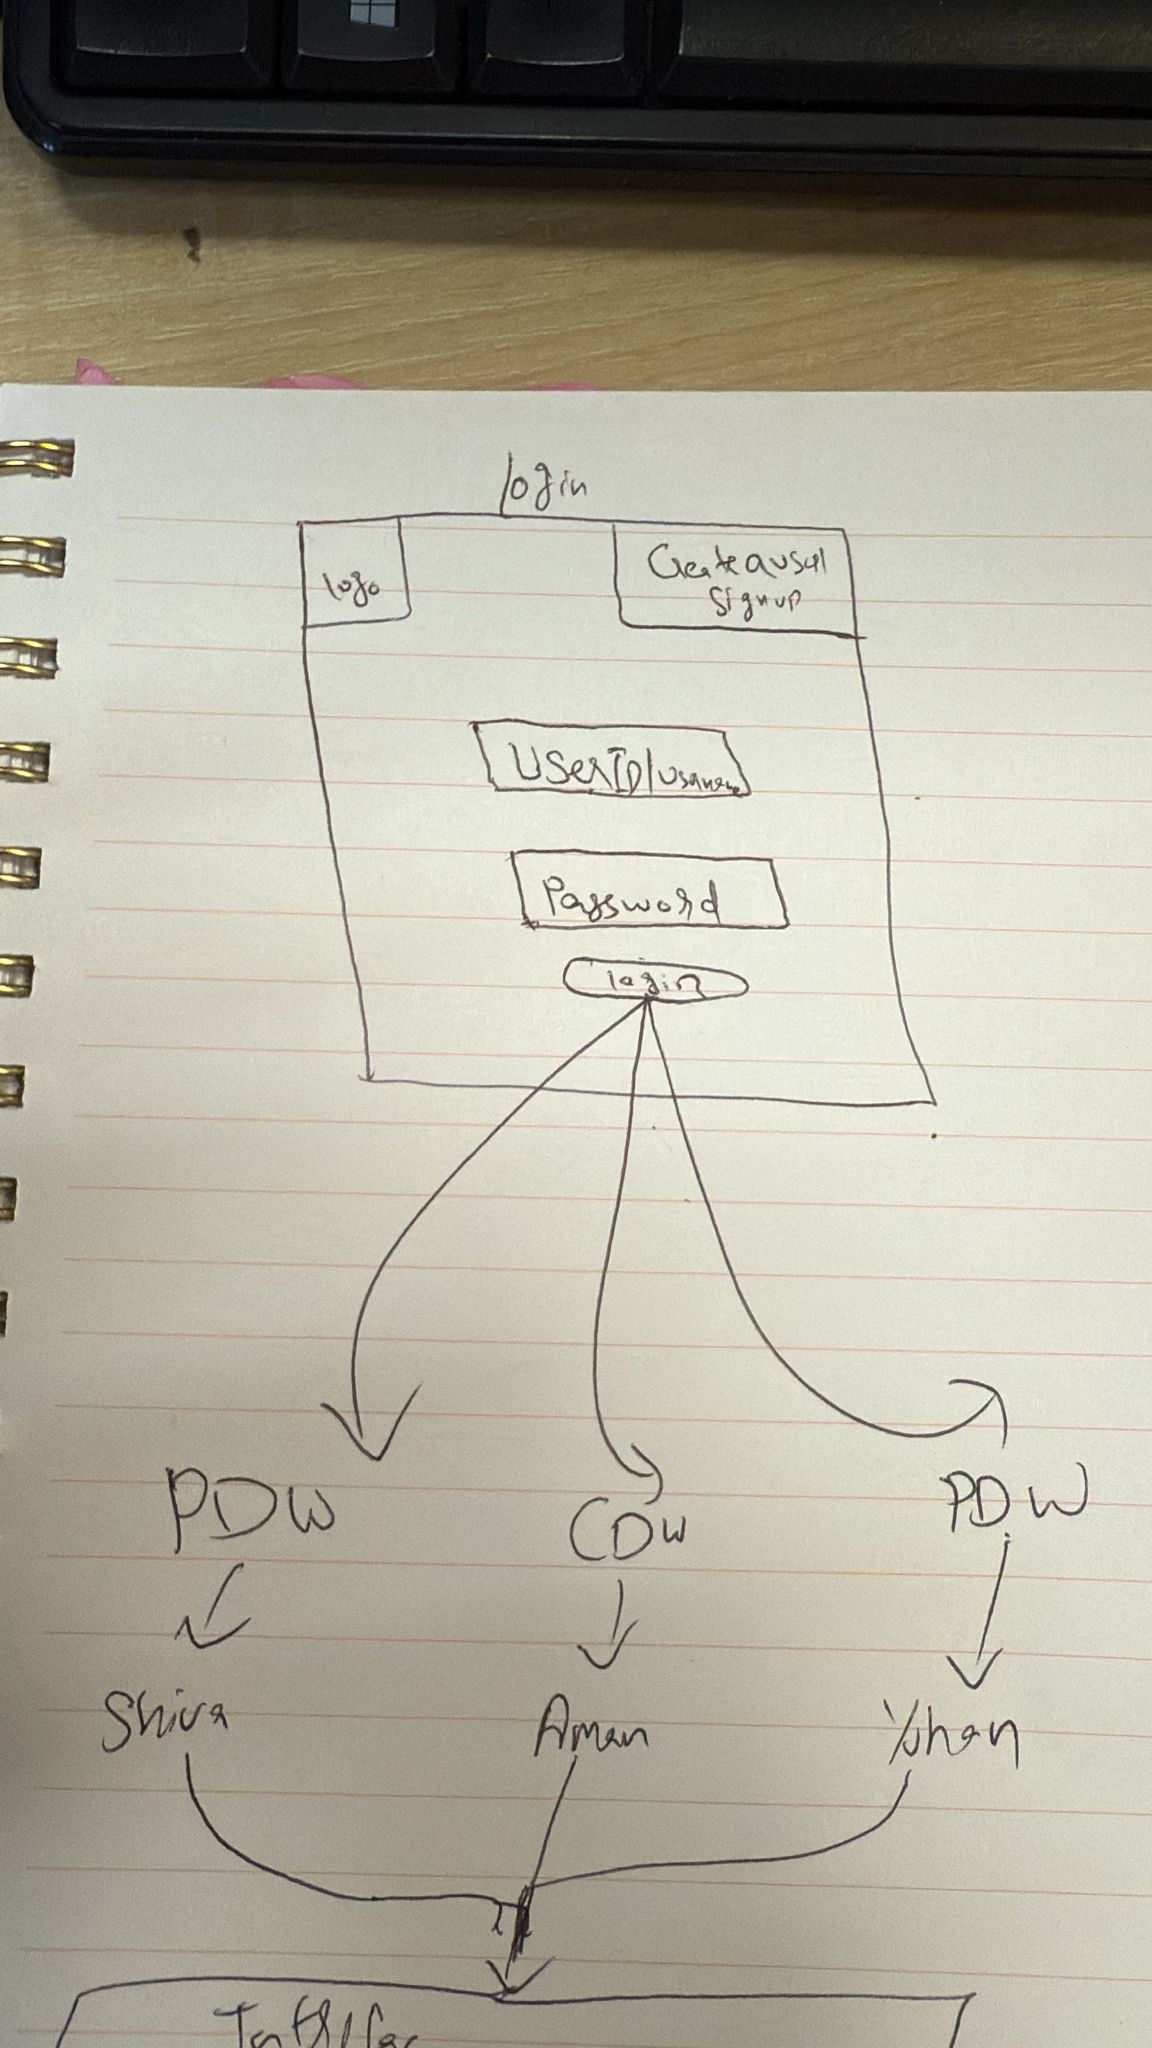 login
logo
Create a usal
Signup
UserID/Username
Password
login
PDW
CDW
PDW
Shiva
Aman
Yohan